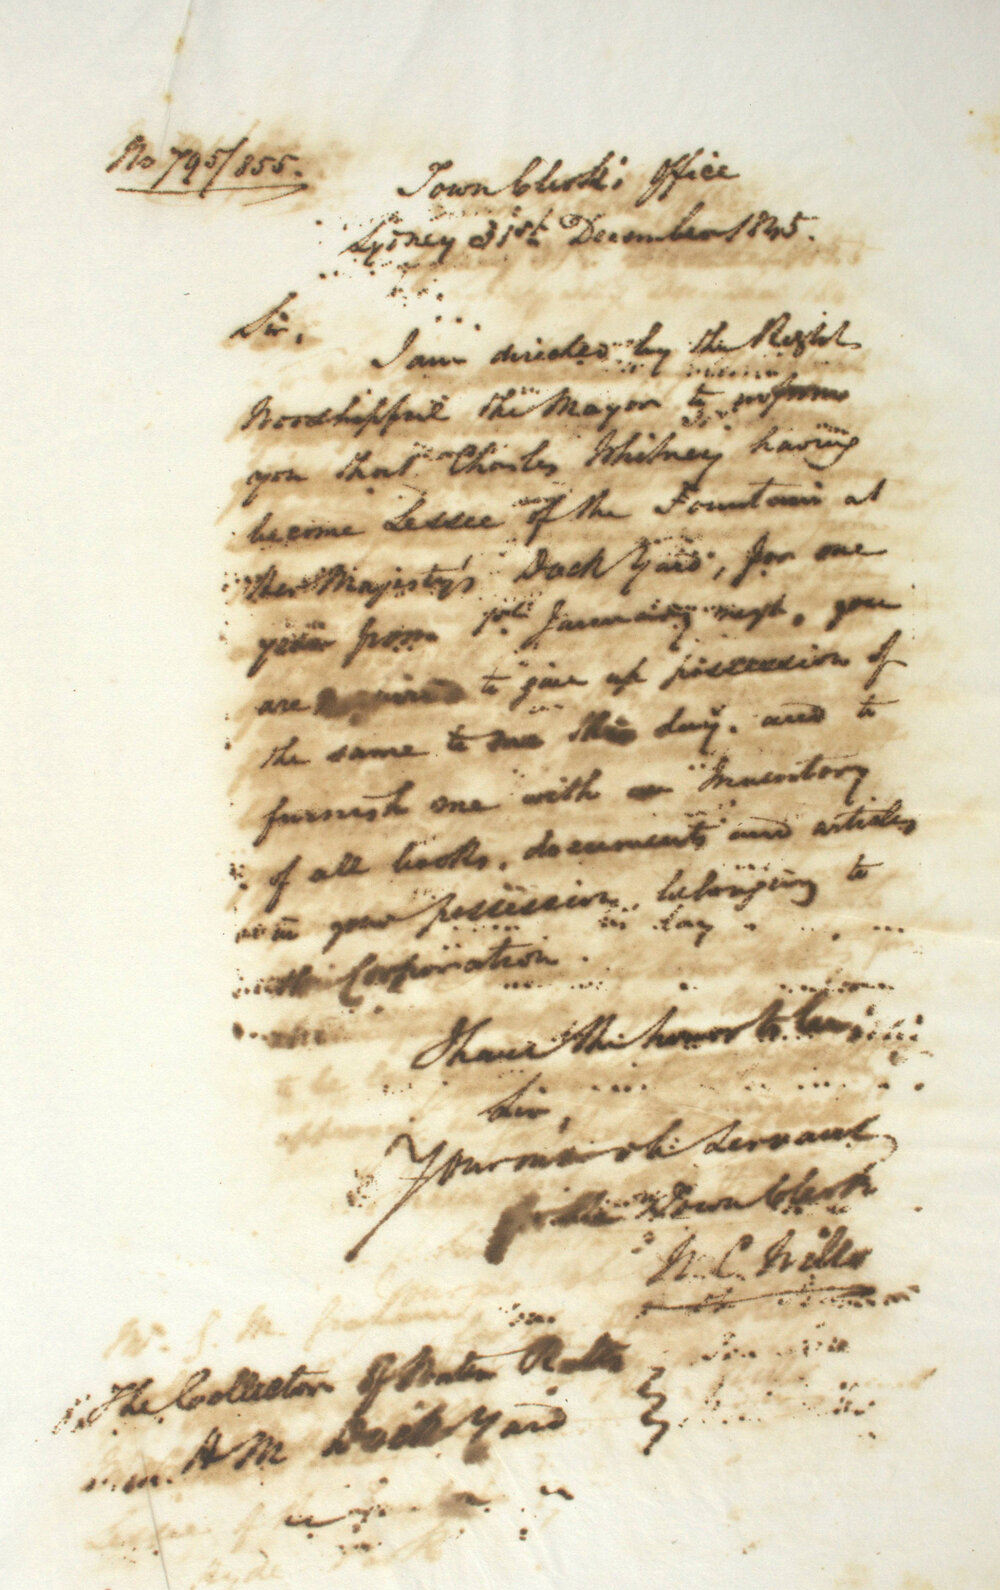 No 795/855.
Town Clerk's Office
Sydney 31st December 1845.
Sir,
I am directed by the Right
Worshipful the Mayor to inform
you that Charles Whitney having
become Lessee of the Fountain at
Her Majesty's Dock Yard, for one
year from 1st January next, you
are required to give up possession of
the same to me this day, and to
furnish me with an Inventory
of all books, documents and articles
in your possession, belonging to
the Corporation.
I have the honor to be
Sir,
Your ob: Servant
for the Town Clerk
W. C. Wills
The Collector of Water Rates
H M Dock Yard